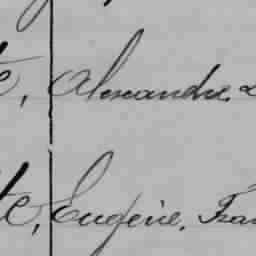 te, Alexandre &
te, Eugénie, Fran